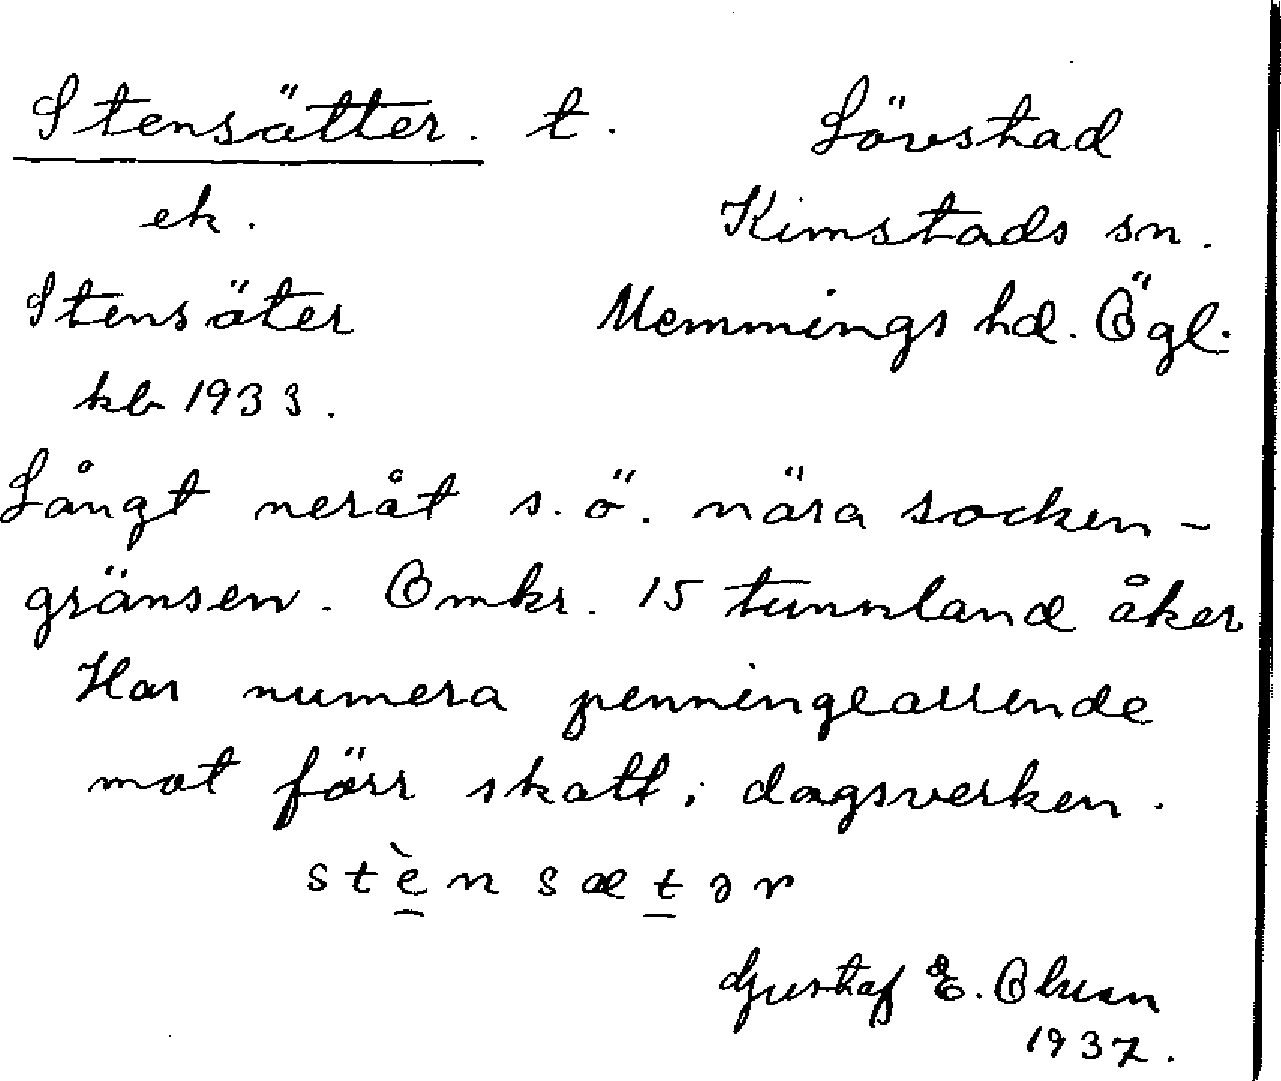 Stensätter. t. Lövstad
ek. Kimstads sn.
Stensäter Memmings hd. Ögl.
kb 1933.
Långt neråt s.ö. nära socken-
gränsen. Omkr. 15 tunnland åker
Har numera penningearrende
mot förr skatt, dagsverken.
stènsætər
Gustaf E. Olsson
1937.